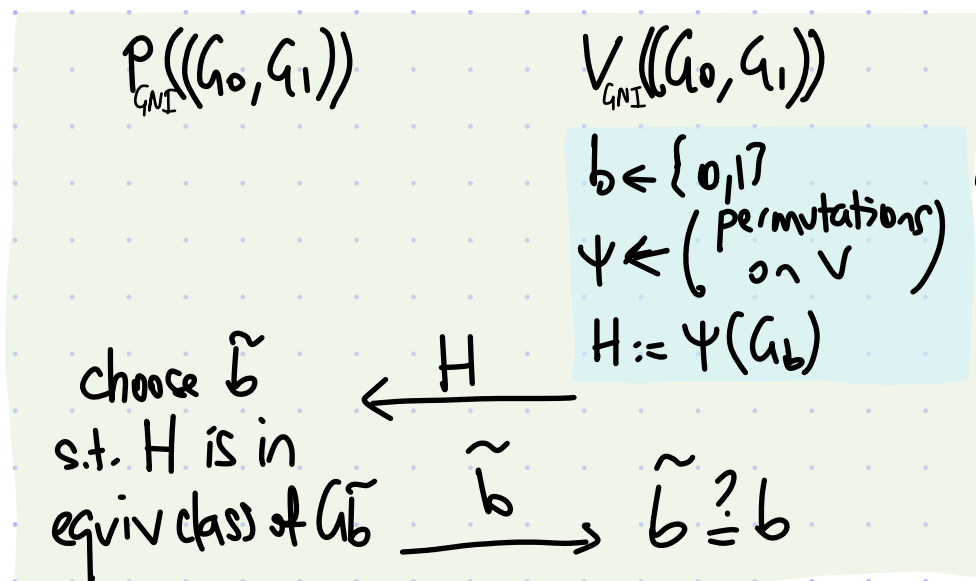 P_GNI((G0, G1)) V_GNI((G0, G1))
b ← {0,1}
ψ ← (permutations on V)
H := ψ(G_b)
H
choose b̃
s.t. H is in
equiv class of G_b̃
b̃
b̃ ≟ b